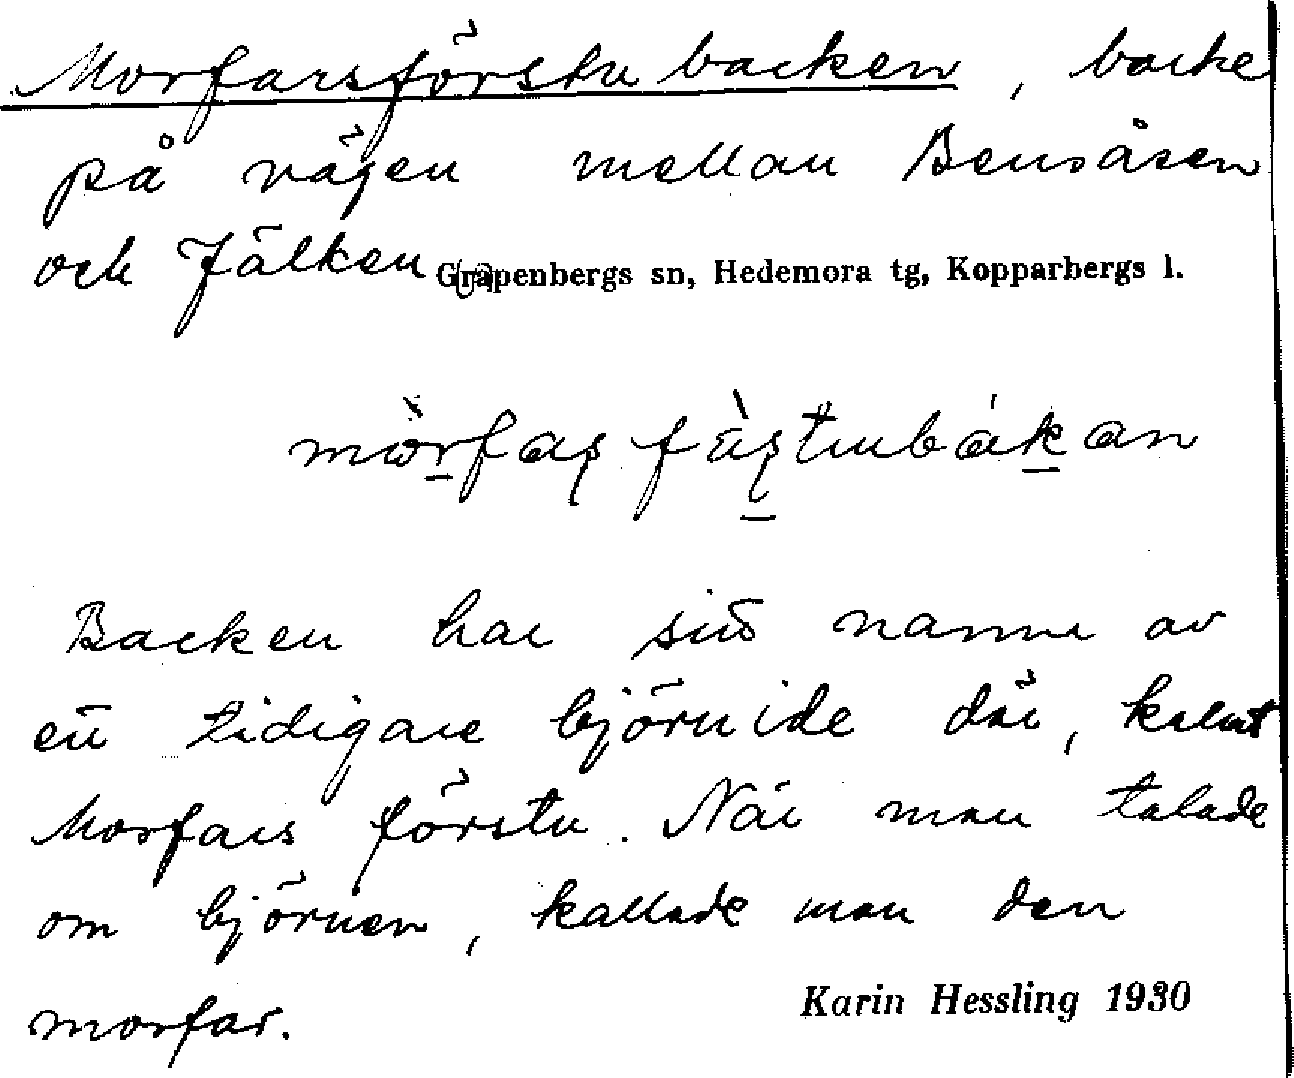 Morfarsförstubacken, backe
på vägen mellan Bensåsen
och Jälken Grapenbergs sn, Hedemora tg, Kopparbergs l.
Backen har sitt namn av
ett tidigare björnide där, kallat
Morfars förstu. När man talade
om björnen, kallade man den
morfar.
Karin Hessling 1930